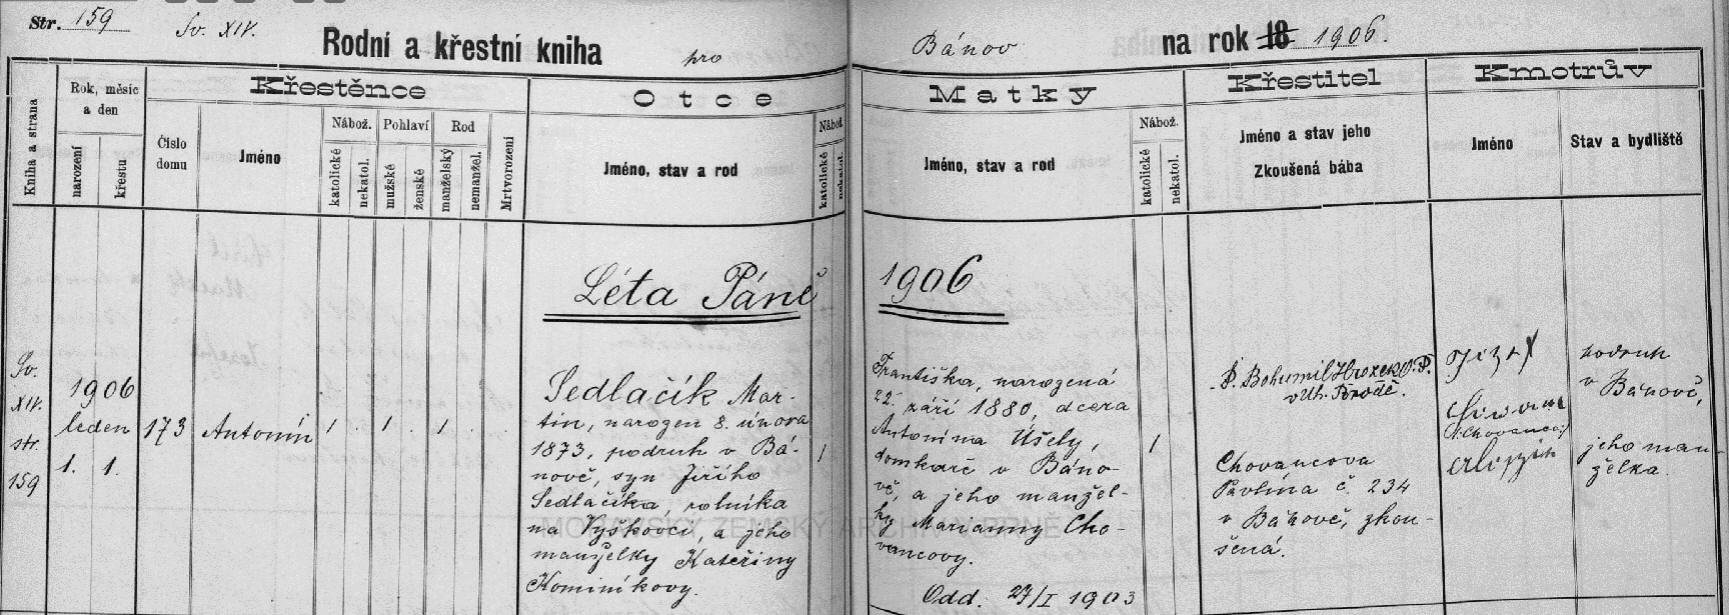 Str. 159
Sv. XIV.
Rodní a křestní kniha pro
Bánov na rok 18 1906.
Kniha a strana
Rok, měsíc
a den
narození
křestu
Křestěnce
Číslo
domu
Jméno
Nábož.
katolické
nekatol.
Pohlaví
mužské
ženské
Rod
manželský
nemanžel.
Mrtvorození
Otce
Jméno, stav a rod
Nábož.
katolické
nekatol.
Matky
Jméno, stav a rod
Nábož.
katolické
nekatol.
Křestitel
Jméno a stav jeho
Zkoušená bába
Kmotrův
Jméno
Stav a bydliště
Léta Páně 1906
Sv.
XIV.
str.
159
1906
leden
1. 1.
173
Antonín
1 . 1 . 1 . .
Sedlačík Mar-
tin, narozen 8. února
1873, podruh v Bá-
nově, syn Jiřího
Sedlačíka, rolníka
na Vyškovci, a jeho
manželky Kateřiny
Kominíkovy.
1
Františka, narozená
22. září 1880, dcera
Antonína Úšely,
domkaře v Báno-
vě, a jeho manžel-
ky Marianny Cho-
vancovy.
Odd. 27/I 1903
1
P. Bohumil
v Uh. Brodě.
Chovancova
Pavlína č. 234
v Bánově, zkou-
šená.
podruh
v Bánově,
jeho man-
želka.
MORAVSKÝ ZEMSKÝ ARCHIV V BRNĚ